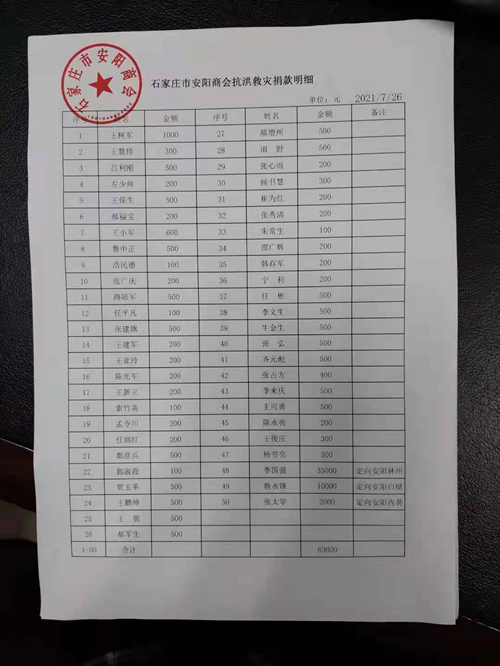 石家庄市安阳商会
石家庄市安阳商会抗洪救灾捐款明细
单位:元 2021/7/26
序 名 金额 序号 姓名 金额 备注
1 王树军 1000 27 郝增州 500
2 王慧玲 300 28 田野 500
3 吕利刚 500 29 张心雨 200
4 左少帅 200 30 候书慧 300
5 王保生 500 31 崔为红 200
6 郝福宝 200 32 张秀清 200
7 王小军 600 33 朱常生 100
8 鲁中正 500 34 邵广辉 200
9 浩民德 100 35 韩存军 200
10 张广庆 200 36 宁利 200
11 路陆军 500 37 任彬 500
12 任平凡 100 38 李文生 500
13 张建旗 500 39 牛金生 500
14 王建军 200 40 张弘 500
15 王亚玲 200 41 齐元彪 500
16 陈光军 200 42 张占方 400
17 王新立 200 43 李来庆 500
18 索竹英 100 44 王司勇 500
19 孟令川 200 45 陈永亮 200
20 任润红 200 46 王俊庄 300
21 都彦兵 500 47 杨雪亮 500
22 郭淑霞 100 48 李国强 35000 定向安阳林州
23 贺玉革 500 49 敦永锋 10000 定向安阳白壁
24 王鹏 500 50 张太学 2000 定向安阳内黄
25 王朋 500
26 郝军生 500
1-50 合计 63600